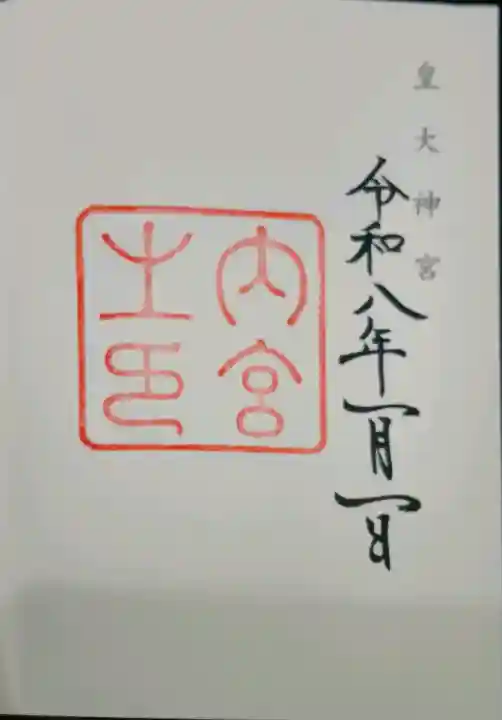 皇大神宮
令和八年一月一日
内宮之印